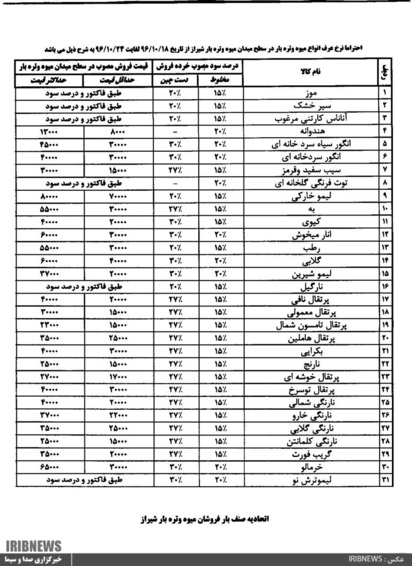 احتراما نرخ عرف انواع میوه وتره بار در سطح میدان میوه وتره بار شیراز از تاریخ ۹۶/۱۰/۱۸ لغایت ۹۶/۱۰/۲۴ به شرح ذیل می باشد
ردیف نام کالا درصد سود مصوب خرده فروش قیمت فروش مصوب در سطح میدان میوه وتره بار
مخلوط دست چین حداقل قیمت حداکثر قیمت
۱ موز ۱۵٪ ۲۰٪ طبق فاکتور و درصد سود
۲ سیر خشک ۱۵٪ ۲۰٪ طبق فاکتور و درصد سود
۳ آناناس کارتنی مرغوب ۱۵٪ ۲۰٪ طبق فاکتور و درصد سود
۴ هندوانه ۲۰٪ – ۸۰۰۰ ۱۳۰۰۰
۵ انگور سیاه سرد خانه ای ۱۵٪ ۳۰٪ ۳۰۰۰۰ ۴۵۰۰۰
۶ انگور سردخانه ای ۱۵٪ ۳۰٪ ۳۰۰۰۰ ۴۰۰۰۰
۷ سیب سفید وقرمز ۱۵٪ ۲۷٪ ۱۵۰۰۰ ۳۰۰۰۰
۸ توت فرنگی گلخانه ای ۲۰٪ – طبق فاکتور و درصد سود
۹ لیمو خارکی ۱۵٪ ۲۰٪ ۷۰۰۰۰ ۸۰۰۰۰
۱۰ به ۱۵٪ ۲۷٪ ۳۰۰۰۰ ۵۵۰۰۰
۱۱ کیوی ۱۵٪ ۳۰٪ ۲۰۰۰۰ ۴۰۰۰۰
۱۲ انار میخوش ۱۵٪ ۳۰٪ ۳۰۰۰۰ ۶۰۰۰۰
۱۳ رطب ۱۵٪ ۲۰٪ ۳۰۰۰۰ ۵۵۰۰۰
۱۴ گلابی ۱۵٪ ۳۰٪ ۴۰۰۰۰ ۶۰۰۰۰
۱۵ لیمو شیرین ۱۵٪ ۳۰٪ ۲۰۰۰۰ ۳۷۰۰۰
۱۶ نارگیل ۱۵٪ ۲۰٪ طبق فاکتور و درصد سود
۱۷ پرتقال نافی ۱۵٪ ۲۷٪ ۲۰۰۰۰ ۴۰۰۰۰
۱۸ پرتقال معمولی ۱۵٪ ۲۷٪ ۱۵۰۰۰ ۳۰۰۰۰
۱۹ پرتقال تامسون شمال ۱۵٪ ۲۷٪ ۱۵۰۰۰ ۲۳۰۰۰
۲۰ پرتقال هاملین ۱۵٪ ۲۷٪ ۲۵۰۰۰ ۳۵۰۰۰
۲۱ بکرایی ۱۵٪ ۲۷٪ ۳۰۰۰۰ ۴۰۰۰۰
۲۲ نارنج ۱۵٪ ۲۷٪ ۱۵۰۰۰ ۲۵۰۰۰
۲۳ پرتقال خوشه ای ۱۵٪ ۲۷٪ ۱۷۰۰۰ ۲۷۰۰۰
۲۴ پرتقال توسرخ ۱۵٪ ۲۷٪ ۳۰۰۰۰ ۴۰۰۰۰
۲۵ نارنگی شمالی ۱۵٪ ۲۷٪ ۲۰۰۰۰ ۴۰۰۰۰
۲۶ نارنگی خارو ۱۵٪ ۲۷٪ ۲۲۰۰۰ ۳۷۰۰۰
۲۷ نارنگی گلابی ۱۵٪ ۲۷٪ ۲۵۰۰۰ ۳۵۰۰۰
۲۸ نارنگی کلمانتن ۱۵٪ ۲۷٪ ۱۵۰۰۰ ۲۵۰۰۰
۲۹ گریپ فورت ۱۵٪ ۲۷٪ ۲۰۰۰۰ ۳۵۰۰۰
۳۰ خرمالو ۲۰٪ ۳۰٪ ۳۰۰۰۰ ۶۵۰۰۰
۳۱ لیموترش نو ۲۰٪ ۳۰٪ طبق فاکتور و درصد سود
اتحادیه صنف بار فروشان میوه وتره بار شیراز
IRIBNEWS
خبرگزاری صدا و سیما
عکس : IRIBNEWS